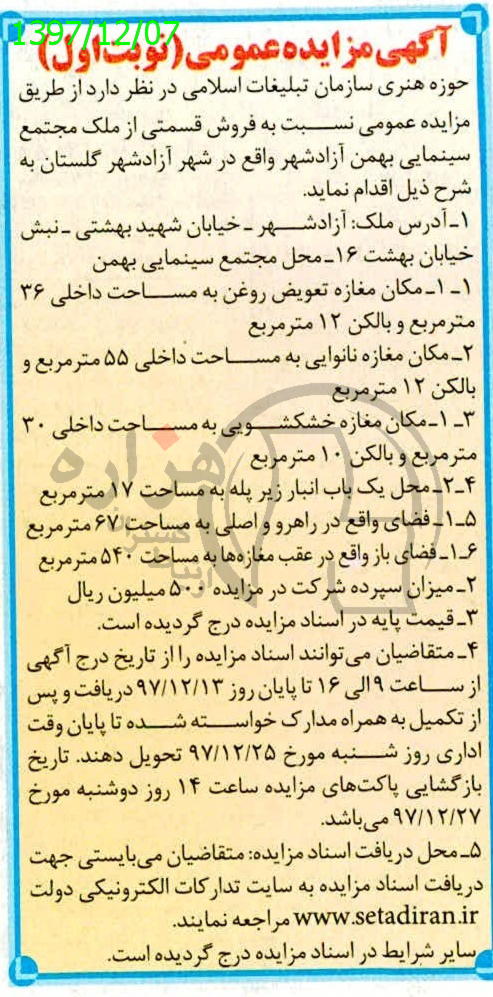 1397/12/07
آگهی مزایده عمومی (نوبت اول)
حوزه هنری سازمان تبلیغات اسلامی در نظر دارد از طریق
مزایده عمومی نسبت به فروش قسمتی از ملک مجتمع
سینمایی بهمن آزادشهر واقع در شهر آزادشهر گلستان به
شرح ذیل اقدام نماید.
۱ـ آدرس ملک: آزادشهر ـ خیابان شهید بهشتی ـ نبش
خیابان بهشت ۱۶ـ محل مجتمع سینمایی بهمن
۱ـ ۱ـ مکان مغازه تعویض روغن به مساحت داخلی ۳۶
مترمربع و بالکن ۱۲ مترمربع
۲ـ مکان مغازه نانوایی به مساحت داخلی ۵۵ مترمربع و
بالکن ۱۲ مترمربع
۳ـ ۱ـ مکان مغازه خشکشویی به مساحت داخلی ۳۰
مترمربع و بالکن ۱۰ مترمربع
۴ـ ۲ـ محل یک باب انبار زیر پله به مساحت ۱۷ مترمربع
۵ـ ۱ـ فضای واقع در راهرو و اصلی به مساحت ۶۷ مترمربع
۶ـ ۱ـ فضای باز واقع در عقب مغازه‌ها به مساحت ۵۴۰ مترمربع
۲ـ میزان سپرده شرکت در مزایده ۵۰۰ میلیون ریال
۳ـ قیمت پایه در اسناد مزایده درج گردیده است.
۴ـ متقاضیان می‌توانند اسناد مزایده را از تاریخ درج آگهی
از ساعت ۹ الی ۱۶ تا پایان روز ۹۷/۱۲/۱۳ دریافت و پس
از تکمیل به همراه مدارک خواسته شده تا پایان وقت
اداری روز شنبه مورخ ۹۷/۱۲/۲۵ تحویل دهند. تاریخ
بازگشایی پاکت‌های مزایده ساعت ۱۴ روز دوشنبه مورخ
۹۷/۱۲/۲۷ می‌باشد.
۵ـ محل دریافت اسناد مزایده: متقاضیان می‌بایستی جهت
دریافت اسناد مزایده به سایت تدارکات الکترونیکی دولت
www.setadiran.ir مراجعه نمایند.
سایر شرایط در اسناد مزایده درج گردیده است.
هزاره